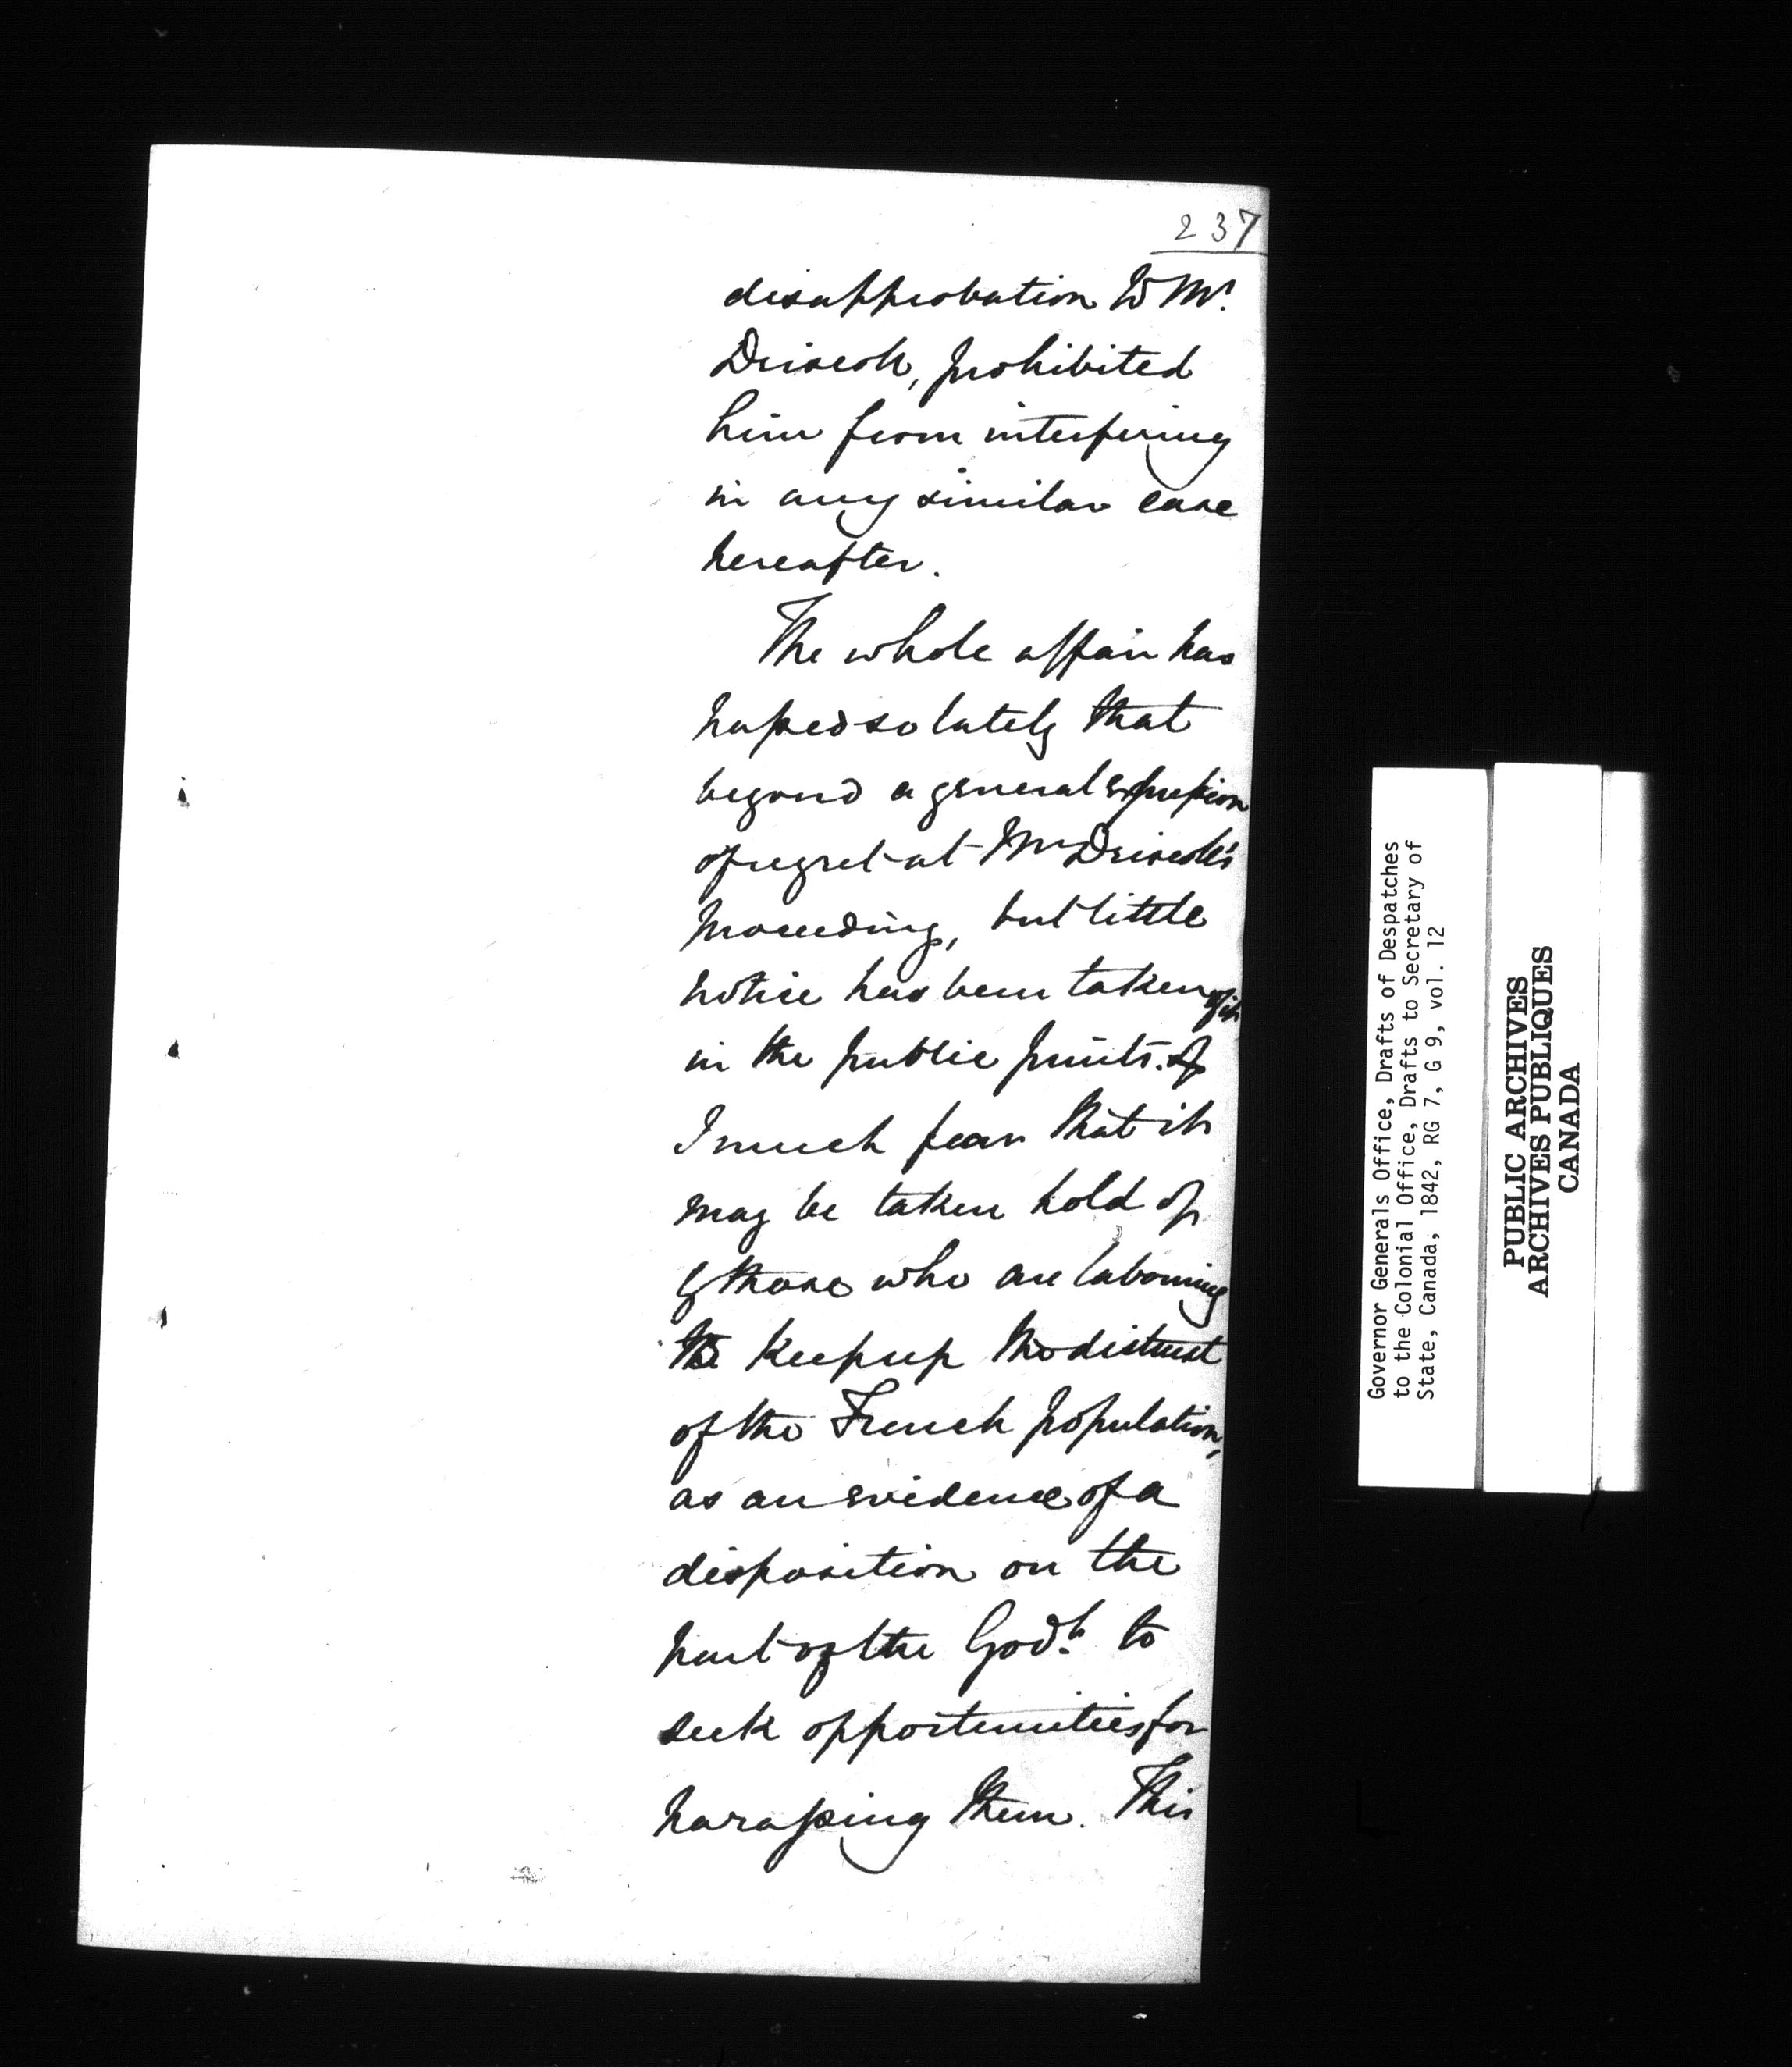 237
disapprobation to Mr.
Driscoll, prohibited
him from interfering
in any similar case
hereafter.
The whole affair has
passed so lately that
beyond a general expression
of regret at Mr Driscoll's
proceeding, but little
notice has been taken of it
in the public prints.
I much fear that it
may be taken hold of
by those who are labouring
to keep up the distrust
of the French population,
as an evidence of a
disposition on the
part of the Govt. to
seek opportunities for
harassing them. This
Governor Generals Office, Drafts of Despatches
to the Colonial Office, Drafts to Secretary of
State, Canada, 1842, RG 7, G 9, vol. 12
PUBLIC ARCHIVES
ARCHIVES PUBLIQUES
CANADA